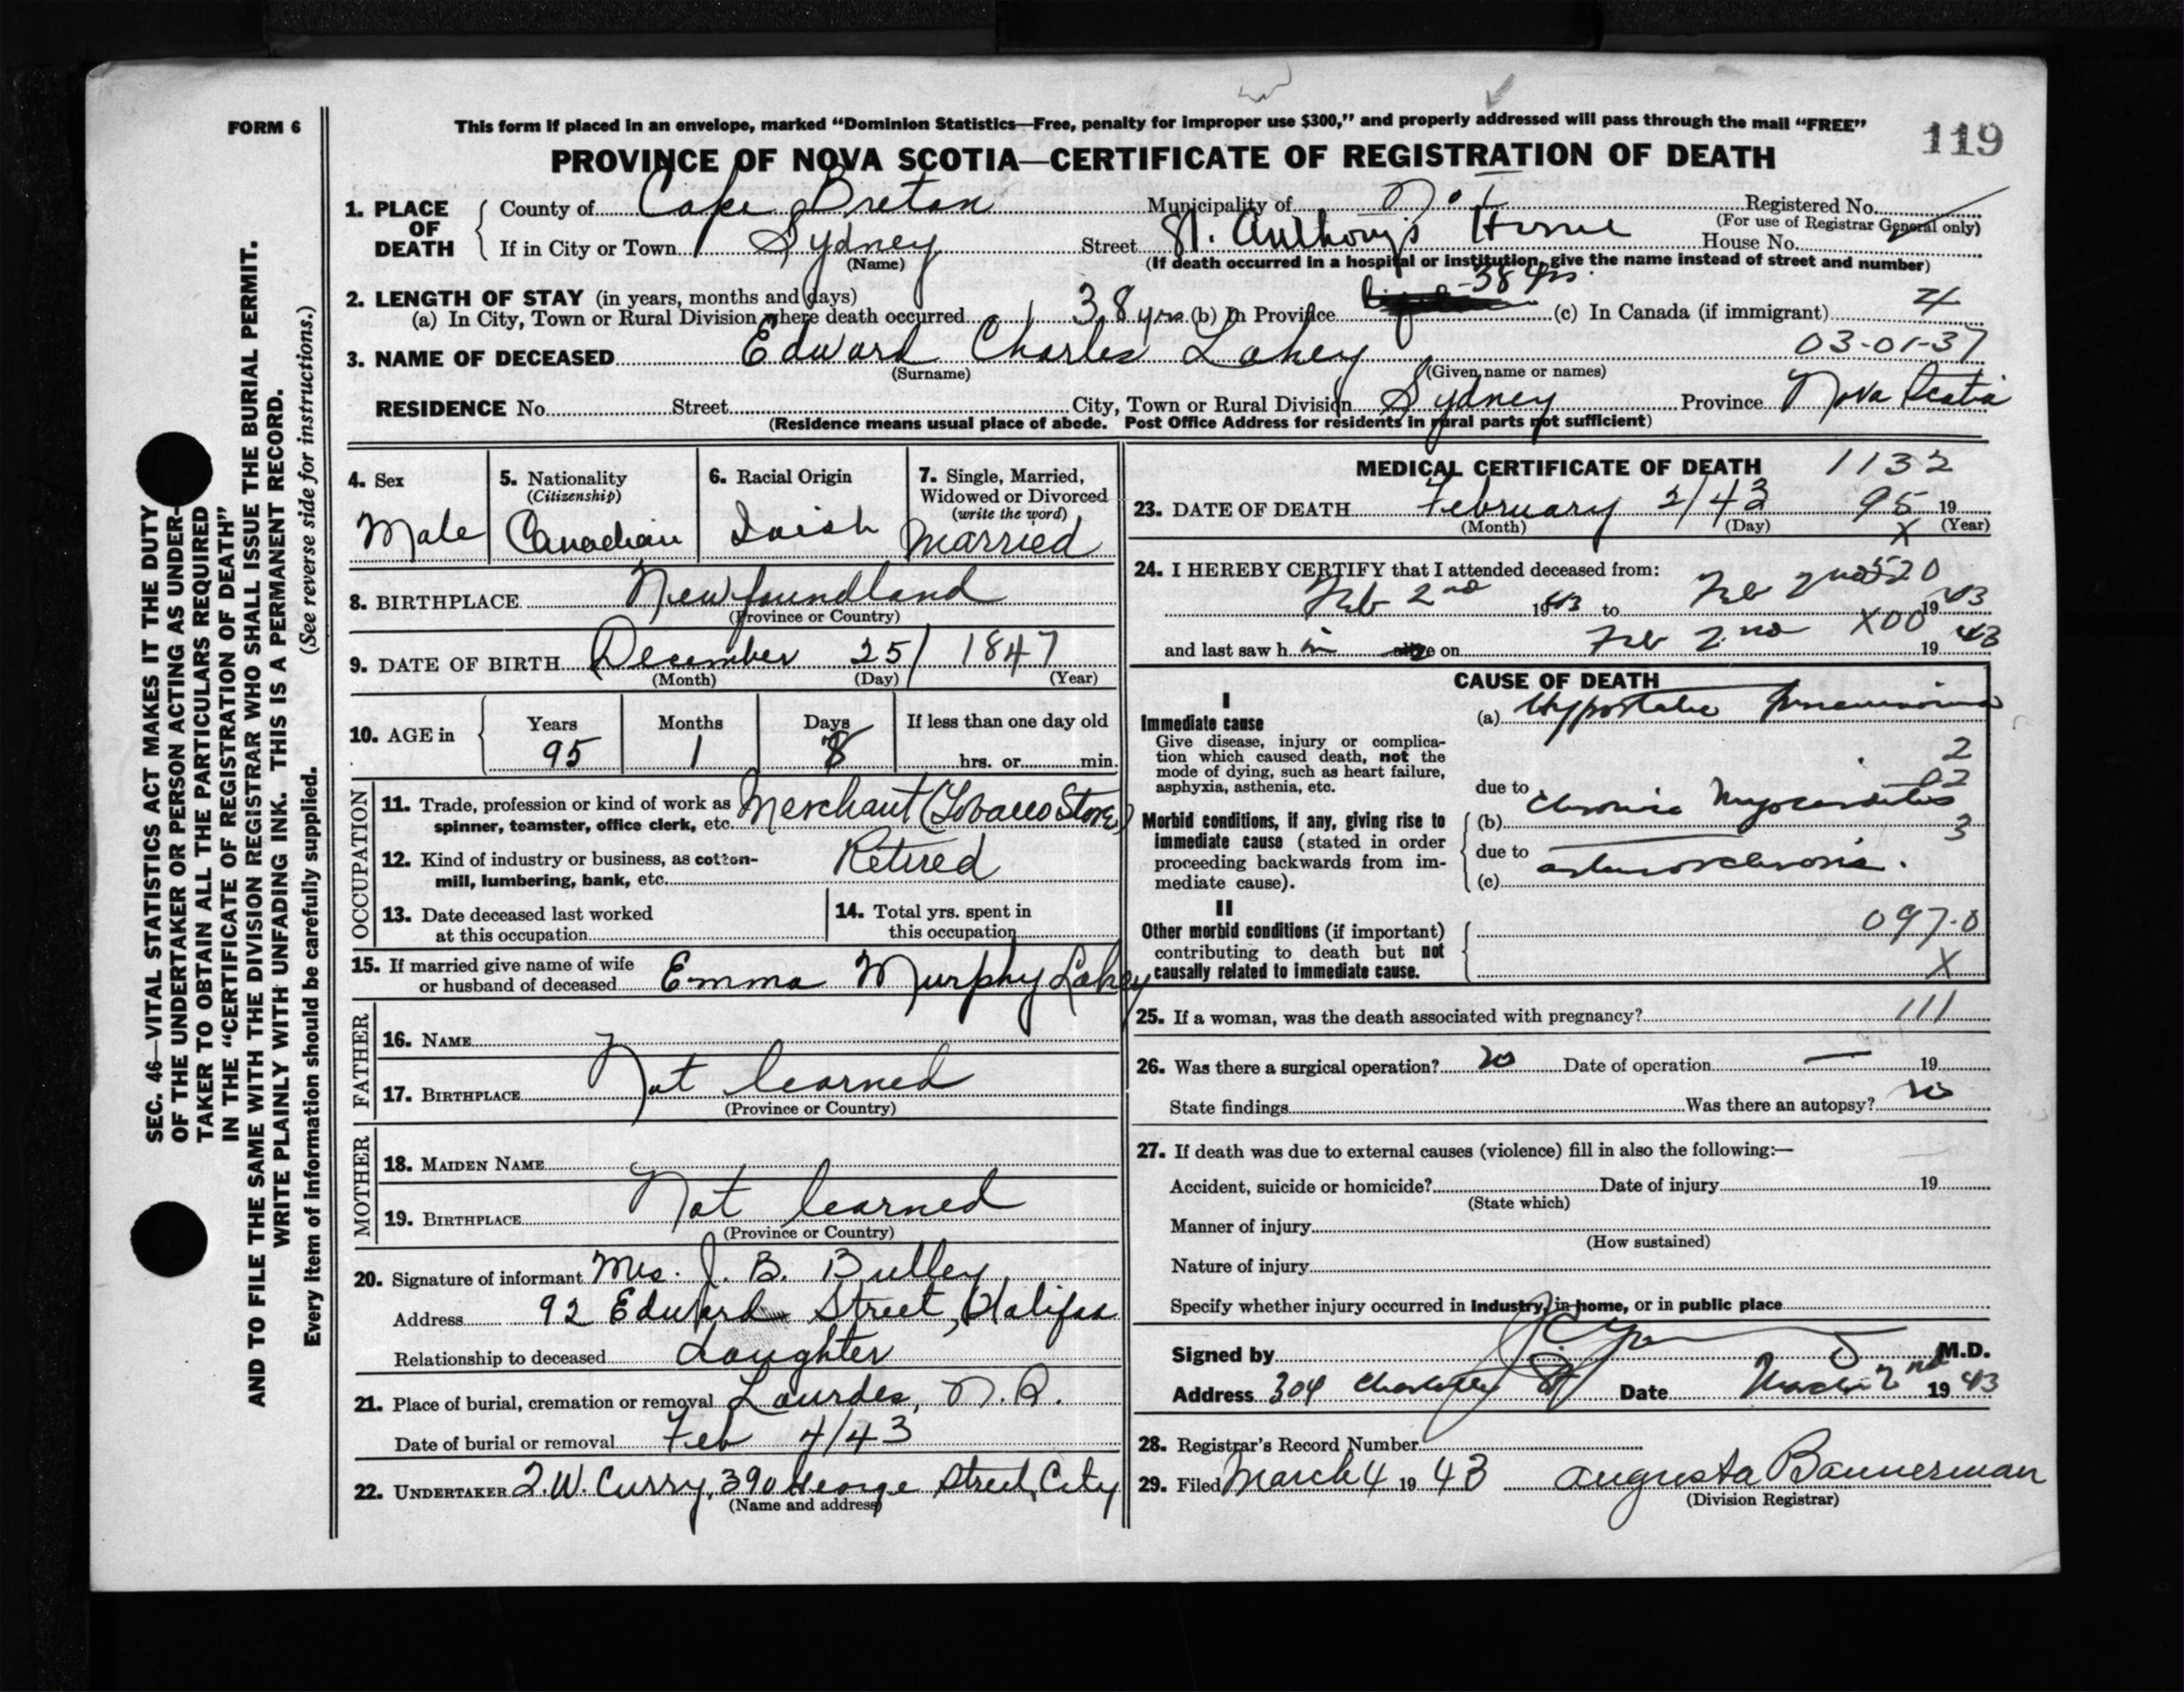 FORM 6
This form if placed in an envelope, marked "Dominion Statistics—Free, penalty for improper use $300," and properly addressed will pass through the mail "FREE"
119
PROVINCE OF NOVA SCOTIA—CERTIFICATE OF REGISTRATION OF DEATH
1. PLACE OF DEATH
County of Cape Breton Municipality of Registered No.
(For use of Registrar General only)
If in City or Town Sydney Street St. Anthony's Home House No.
(Name) (If death occurred in a hospital or institution, give the name instead of street and number)
2. LENGTH OF STAY (in years, months and days) 38 yrs.
(a) In City, Town or Rural Division where death occurred 38 yrs (b) In Province (c) In Canada (if immigrant) 4
3. NAME OF DECEASED Edward Charles Lahey 03-01-37
(Surname) (Given name or names)
RESIDENCE No. Street City, Town or Rural Division Sydney Province Nova Scotia
(Residence means usual place of abode. Post Office Address for residents in rural parts not sufficient)
4. Sex
Male
5. Nationality
(Citizenship)
Canadian
6. Racial Origin
Irish
7. Single, Married,
Widowed or Divorced
(write the word)
Married
8. BIRTHPLACE Newfoundland
(Province or Country)
9. DATE OF BIRTH December 25/ 1847
(Month) (Day) (Year)
10. AGE in
Years Months Days If less than one day old
95 1 8 hrs. or min.
OCCUPATION
11. Trade, profession or kind of work as Merchant (Tobacco Store)
spinner, teamster, office clerk, etc.
12. Kind of industry or business, as cotton- Retired
mill, lumbering, bank, etc.
13. Date deceased last worked
at this occupation
14. Total yrs. spent in
this occupation
15. If married give name of wife Emma Murphy Lahey
or husband of deceased
FATHER
16. NAME
Not learned
17. BIRTHPLACE
(Province or Country)
MOTHER
18. MAIDEN NAME
Not learned
19. BIRTHPLACE
(Province or Country)
20. Signature of informant Mrs. J. B. Bulley
Address 92 Edward Street, Halifax
Relationship to deceased Daughter
21. Place of burial, cremation or removal Lourdes, N.S.
Date of burial or removal Feb 4/43
22. UNDERTAKER W. Curry, 390 George Street, City
(Name and address)
MEDICAL CERTIFICATE OF DEATH 1132
23. DATE OF DEATH February 2/43 95 19
(Month) (Day) X (Year)
24. I HEREBY CERTIFY that I attended deceased from: 520
Feb 2nd 1943 to Feb 2nd 1943
X00
and last saw h im alive on Feb 2nd 1943
CAUSE OF DEATH
I
Immediate cause
Give disease, injury or complica-
tion which caused death, not the
mode of dying, such as heart failure,
asphyxia, asthenia, etc.
(a) Hypostatic Pneumonia
2
02
due to
Morbid conditions, if any, giving rise to
immediate cause (stated in order
proceeding backwards from im-
mediate cause).
(b) Chronic Myocarditis
3
due to
(c) arteriosclerosis.
II
Other morbid conditions (if important)
contributing to death but not
causally related to immediate cause.
097.0
X
25. If a woman, was the death associated with pregnancy? 111
26. Was there a surgical operation? no Date of operation — 19
State findings Was there an autopsy? no
27. If death was due to external causes (violence) fill in also the following:—
Accident, suicide or homicide? Date of injury 19
(State which)
Manner of injury
(How sustained)
Nature of injury
Specify whether injury occurred in industry, in home, or in public place
Signed by M.D.
Address 304 Charlotte St Date March 2nd 1943
28. Registrar's Record Number
29. Filed March 4 1943 Augusta Bannerman
(Division Registrar)
SEC. 46—VITAL STATISTICS ACT MAKES IT THE DUTY
OF THE UNDERTAKER OR PERSON ACTING AS UNDER-
TAKER TO OBTAIN ALL THE PARTICULARS REQUIRED
IN THE "CERTIFICATE OF REGISTRATION OF DEATH"
AND TO FILE THE SAME WITH THE DIVISION REGISTRAR WHO SHALL ISSUE THE BURIAL PERMIT.
WRITE PLAINLY WITH UNFADING INK. THIS IS A PERMANENT RECORD.
Every item of information should be carefully supplied. (See reverse side for instructions.)